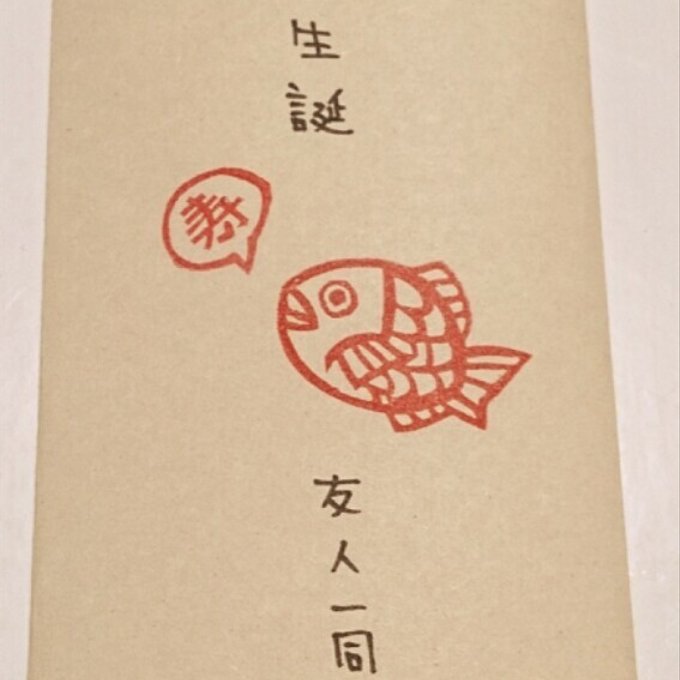 生誕
寿
友人一同